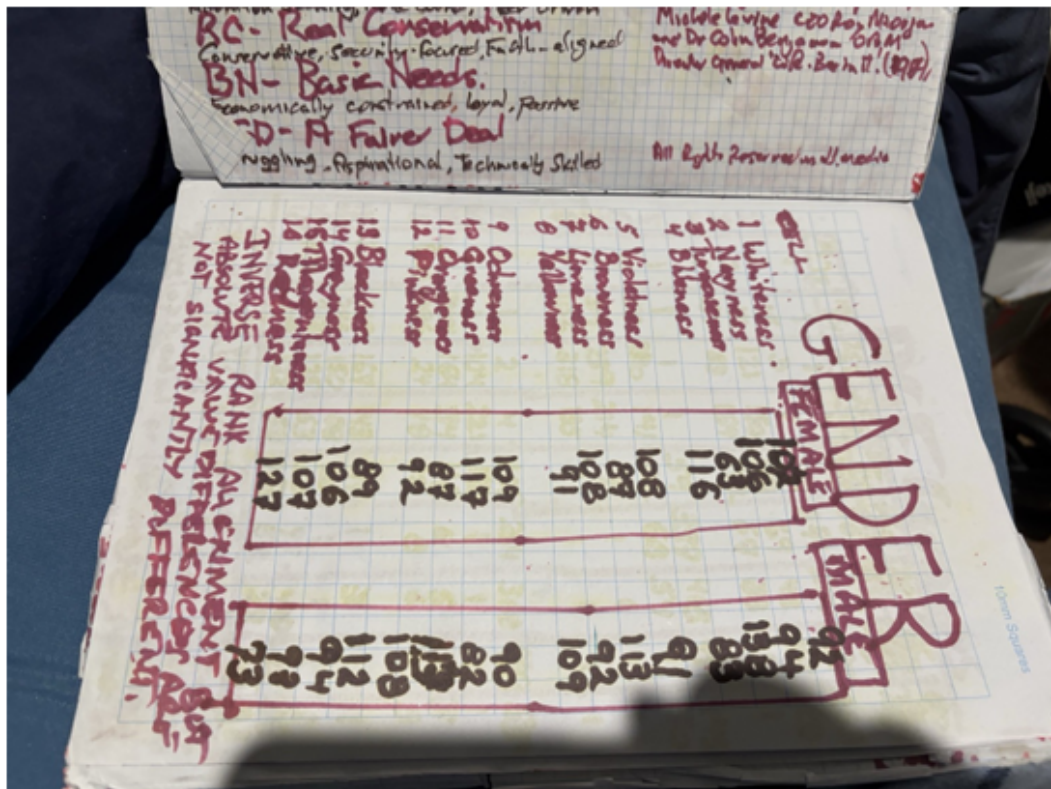 RC- Real Conservatism
Conservative, Security-focused, Faith-aligned
BN- Basic Needs.
Economically constrained, loyal, passive
D- A Fairer Deal
ruggling, Aspirational, Technically Skilled
Michele Levine CEO Roy Morgan
and Dr Colin Benjamin OAM
Director General
All Rights Reserved in all media
GENDER
CELL FEMALE MALE
1 Whiteness. 92
2 Navyness 106 94
3 Turqueness 63 138
4 Blueness 116 83
5 Violetness 108 91
6 Brownness 113
7 Limeness 108 92
8 Yellowness 91 109
9 Ochreness 109 90
10 Greenness 117 82
11 Orangeness 87
12 Pinkness 92 108
13 Blackness 89 112
14 Greyness 106 94
15 Magentaness 107
16 Redness 127 73
INVERSE RANK ALIGNMENT BUT
ABSOLUTE VALUE DIFFERENCES ARE
NOT SIGNIFICANTLY DIFFERENT.
10mm Squares